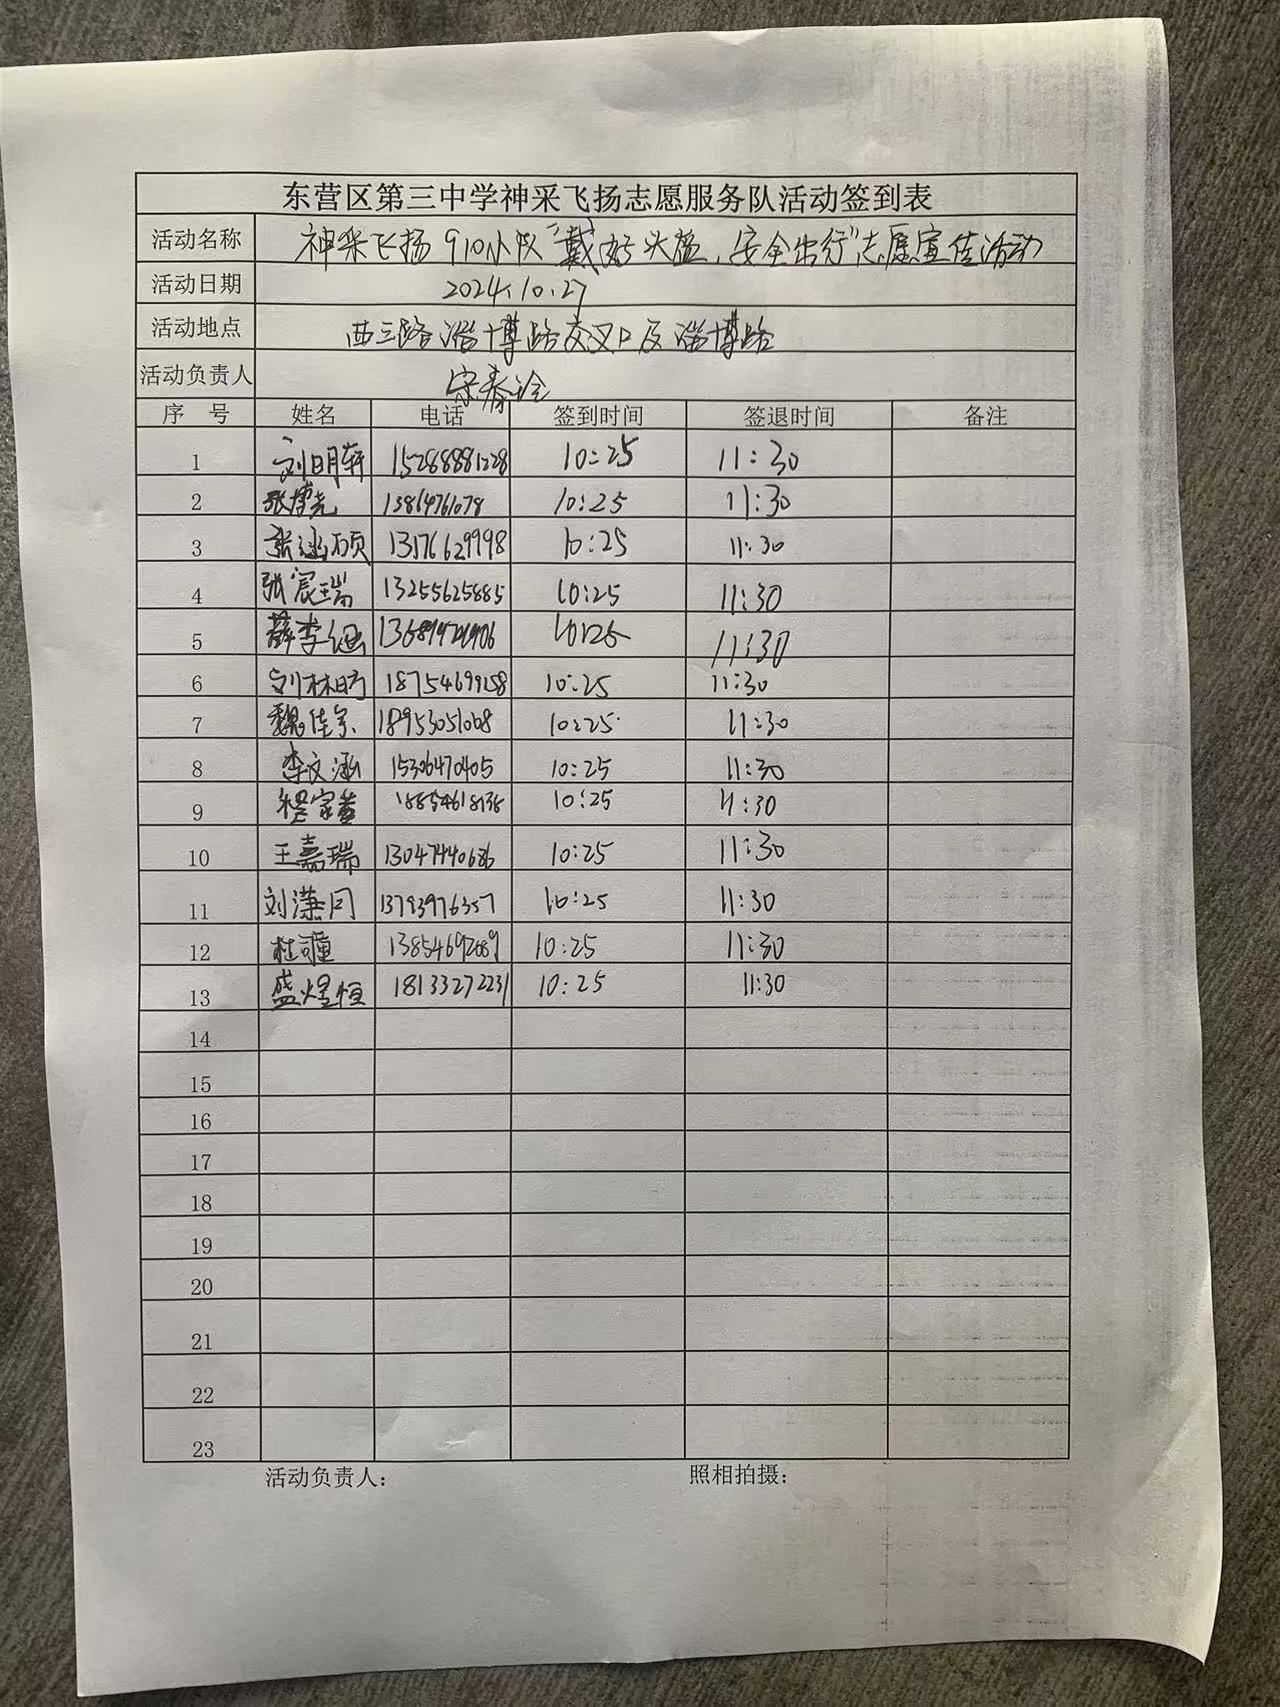 东营区第三中学神采飞扬志愿服务队活动签到表
活动名称 神采飞扬910小队“戴好头盔，安全出行”志愿宣传活动
活动日期 2024.10.27
活动地点 西三路淄博路交叉口及淄博路
活动负责人 宋春
序 号 姓名 电话 签到时间 签退时间 备注
1 刘明轩 15288881228 10:25 11:30
2 张博尧 10:25 11:30
3 张涵硕 13176629998 10:25 11:30
4 张宸瑞 13255625885 10:25 11:30
5 薛李涵 10:25 11:30
6 刘林昉 10:25 11:30
7 魏佳宗 18953051068 10:25 11:30
8 李文涵 15306470405 10:25 11:30
9 10:25 11:30
10 王嘉瑞 13047440686 10:25 11:30
11 刘潇同 13793976357 10:25 11:30
12 杜司瞳 13854692089 10:25 11:30
13 盛煜恒 18133272231 10:25 11:30
14
15
16
17
18
19
20
21
22
23
活动负责人： 照相拍摄：